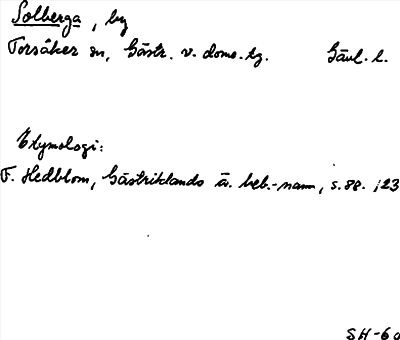 Solberga, by
Torsåker sn, Gästr. v. doms.tg. Gävl. l.
Etymologi:
F. Hedblom, Gästriklands ä. beb.-namn, s. 88. ;123
SH-60